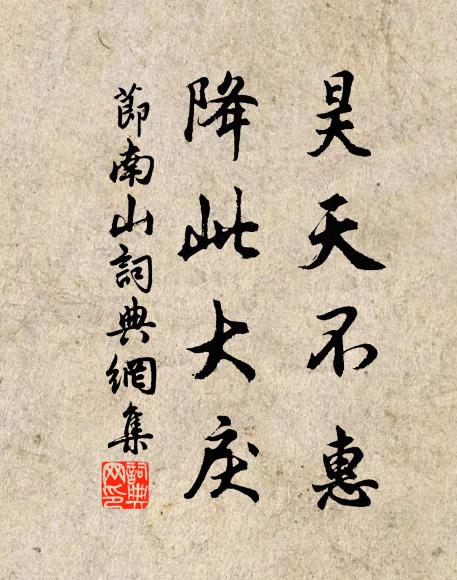 昊天不惠
降此大戾
節南山詞典網集
詞典網印